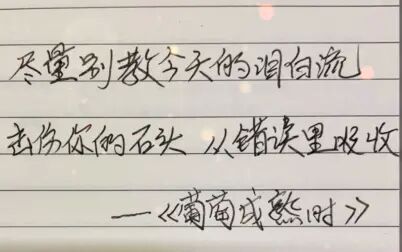 尽量别教今天的泪白流
击伤你的石头 从错误里吸收
——《葡萄成熟时》